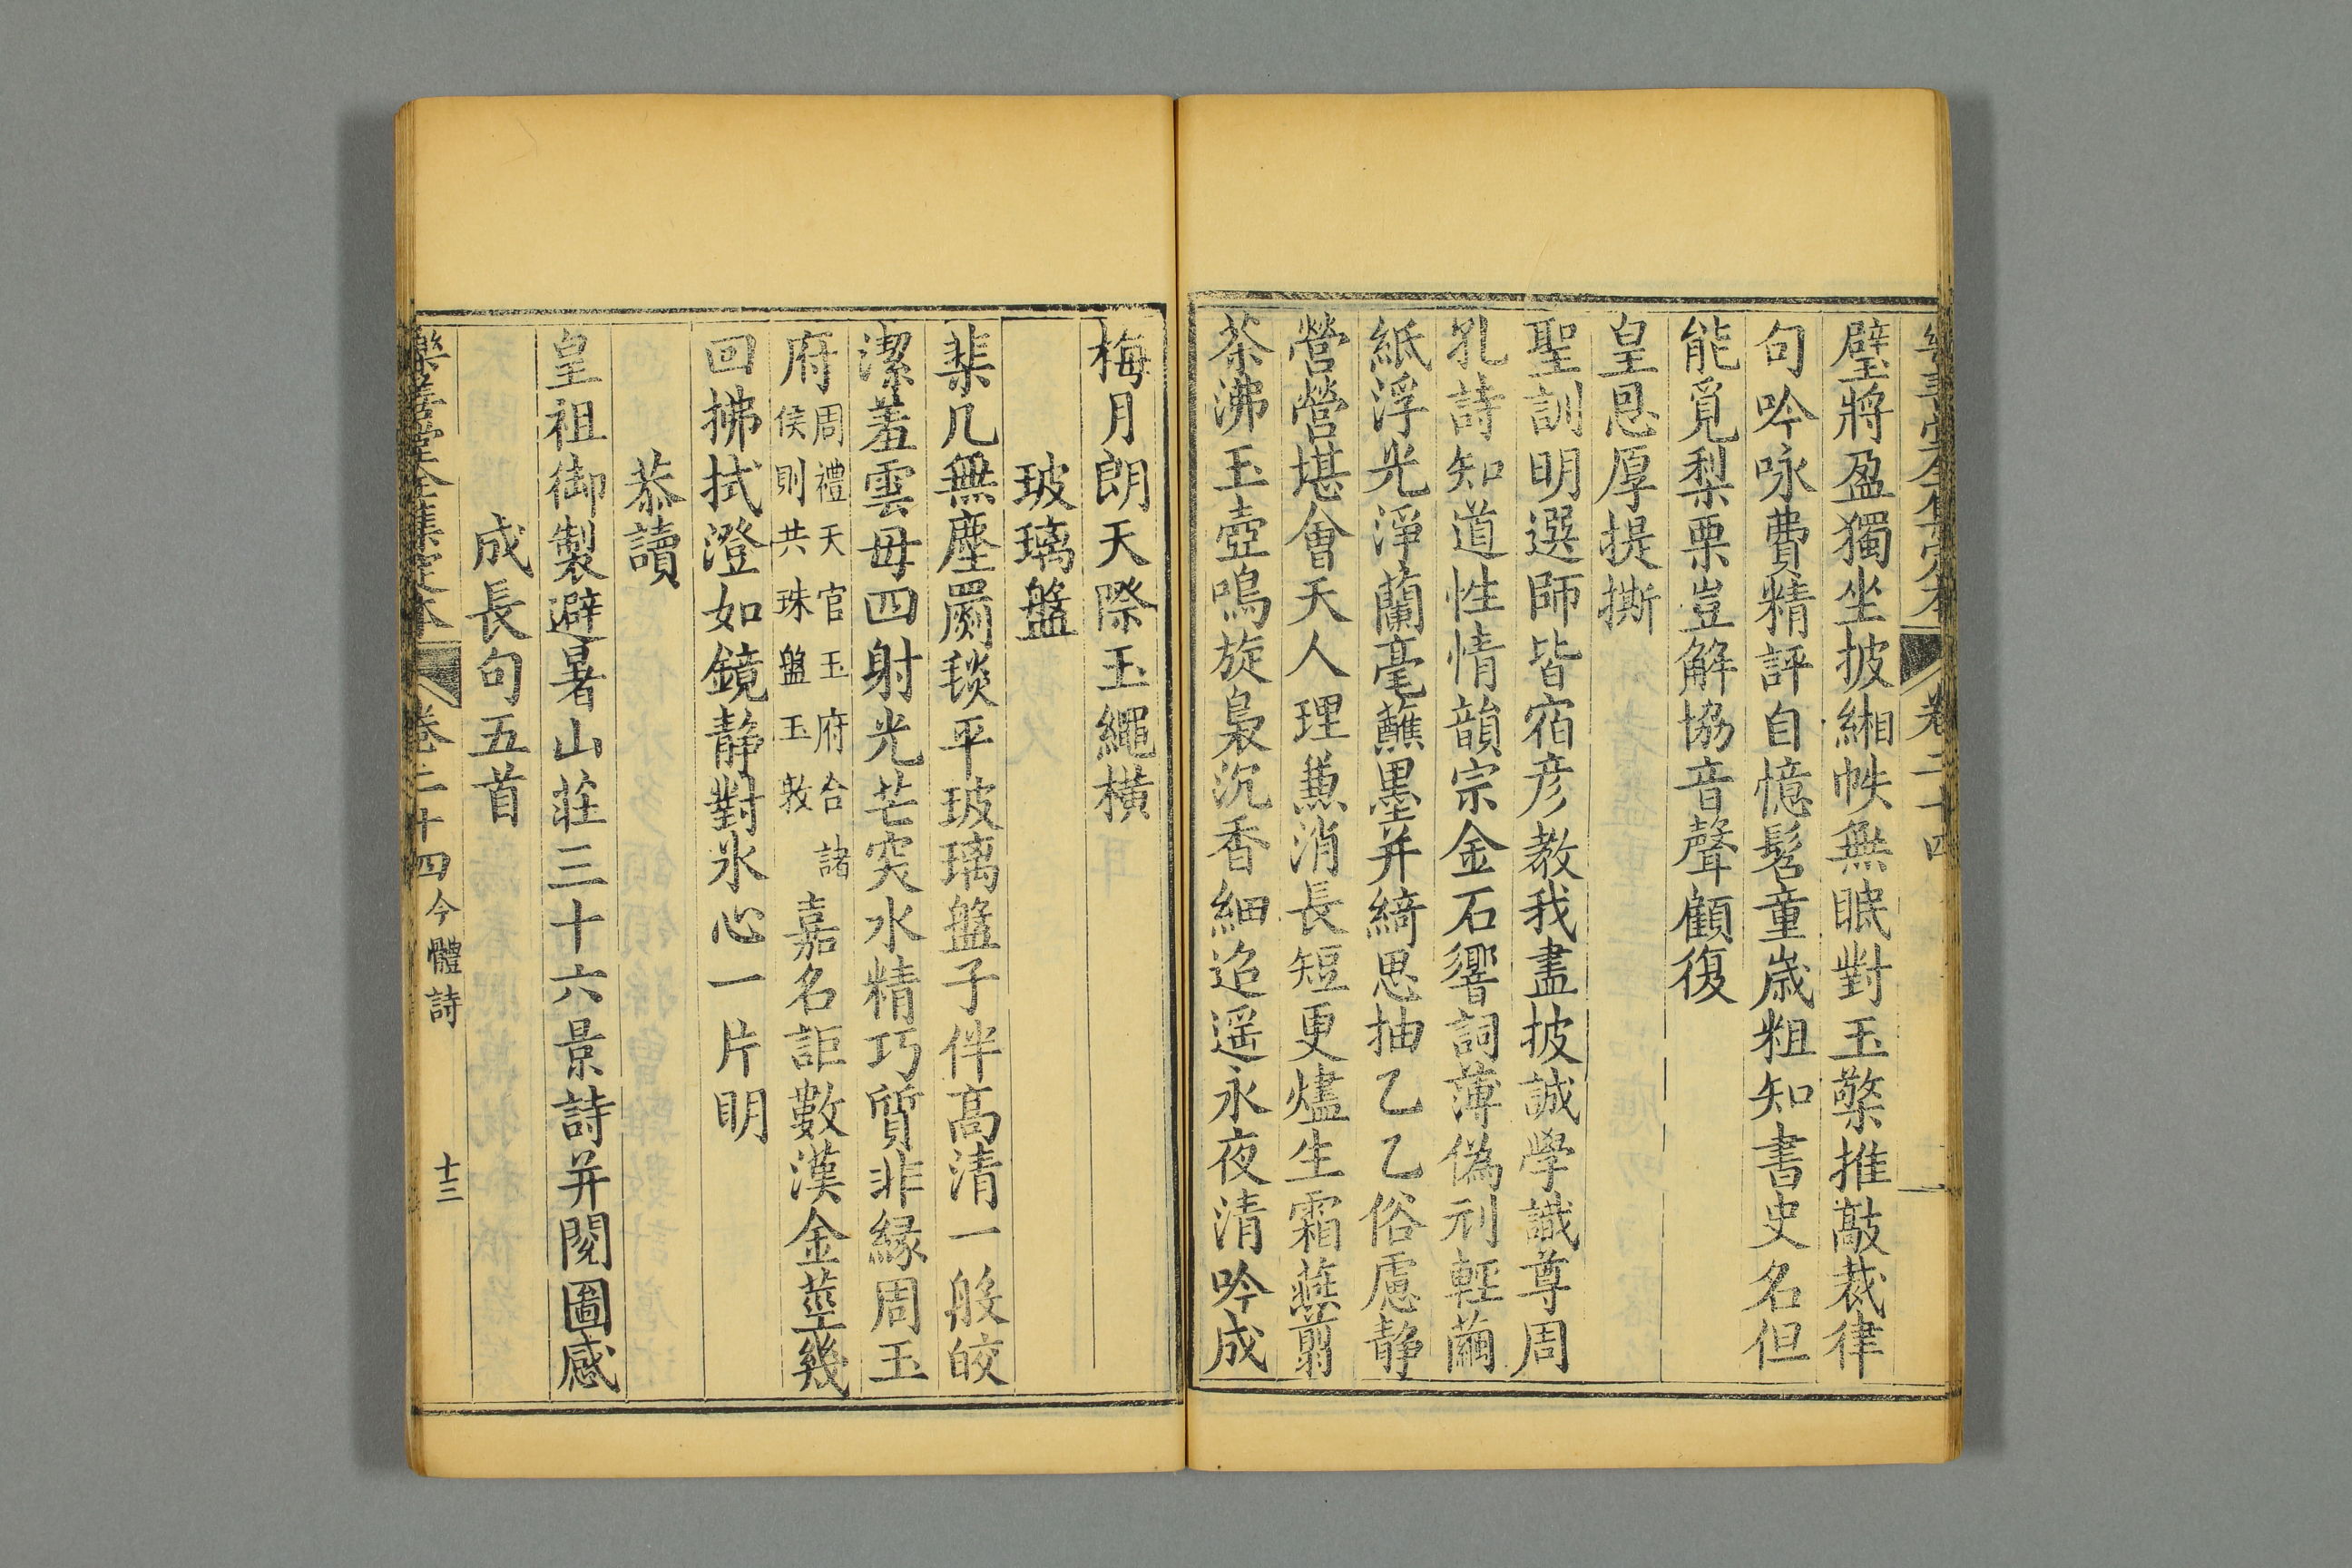 樂善堂全集定本 卷二十四
璧將盈獨坐披緗帙無眠對玉檠推敲裁律
句吟咏費精評自憶髫童歲粗知書史名但
能覓梨栗豈解協音聲顧復
皇恩厚提撕
聖訓明選師皆宿彦教我盡披誠學識尊周
孔詩知道性情韻宗金石響詞薄偽刓輕繭
紙浮光淨蘭毫蘸墨并綺思抽乙乙俗慮静
營營堪會天人理兼消長短更燼生霜燕翦
茶沸玉壺鳴旋裊沉香細迨遥永夜清吟成
梅月朗天際玉繩橫
玻璃盤
棐几無塵罽毯平玻璃盤子伴高清一般皎
潔羞雲母四射光芒突水精巧質非縁周玉
府周禮天官玉府合諸侯則共珠盤玉敦嘉名詎數漢金莖幾
回拂拭澄如鏡静對氷心一片明
恭讀
皇祖御製避暑山莊三十六景詩并閱圖感
成長句五首
樂善堂全集定本 卷二十四 今體詩 十三